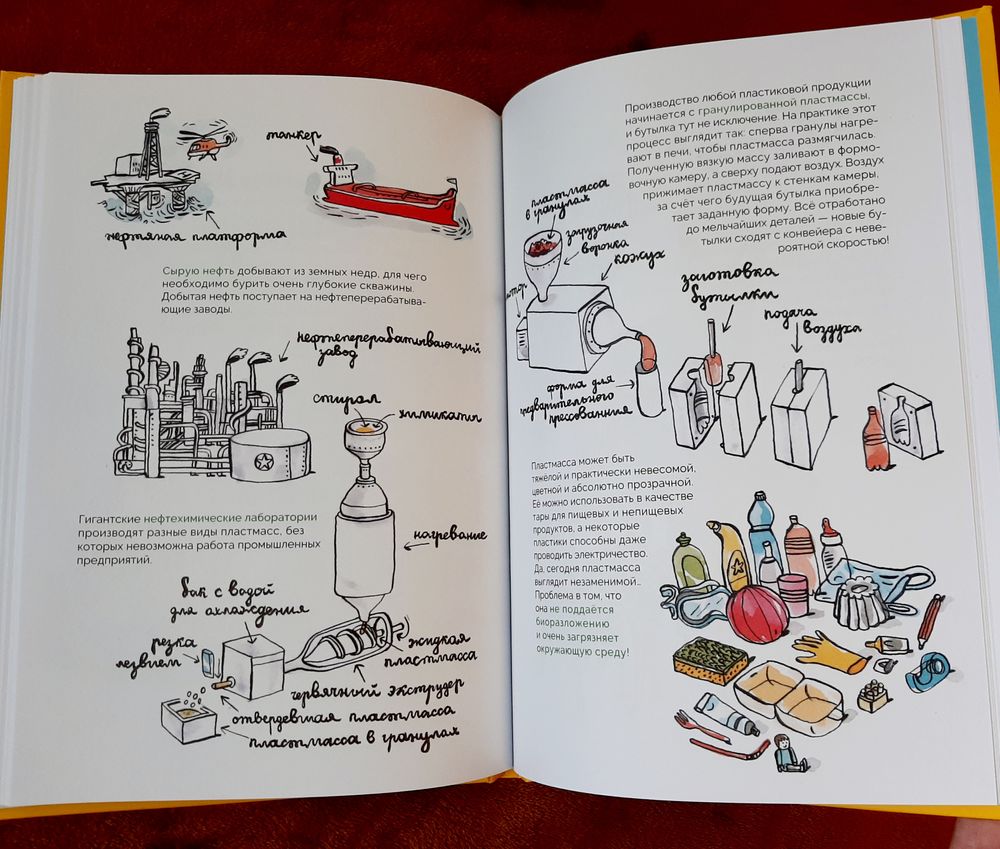 танкер
нефтяная платформа
Сырую нефть добывают из земных недр, для чего
необходимо бурить очень глубокие скважины.
Добытая нефть поступает на нефтеперерабатыва-
ющие заводы.
нефтеперерабатывающий
завод
стирол
химикаты
Гигантские нефтехимические лаборатории
производят разные виды пластмасс, без
которых невозможна работа промышленных
предприятий.
нагревание
бак с водой
для охлаждения
резка
лезвием
жидкая
пластмасса
червячный экструдер
отвердевшая пластмасса
пластмасса в гранулах
Производство любой пластиковой продукции
начинается с гранулированной пластмассы,
и бутылка тут не исключение. На практике этот
процесс выглядит так: сперва гранулы нагре-
вают в печи, чтобы пластмасса размягчилась.
Полученную вязкую массу заливают в формо-
вочную камеру, а сверху подают воздух. Воздух
прижимает пластмассу к стенкам камеры,
за счёт чего будущая бутылка приобре-
тает заданную форму. Всё отработано
до мельчайших деталей — новые бу-
тылки сходят с конвейера с неве-
роятной скоростью!
пластмасса
в гранулах
загрузочная
воронка
кожух
заготовка
бутылки
подача
воздуха
форма для
предварительного
прессования
Пластмасса может быть
тяжелой и практически невесомой,
цветной и абсолютно прозрачной.
Её можно использовать в качестве
тары для пищевых и непищевых
продуктов, а некоторые
пластики способны даже
проводить электричество.
Да, сегодня пластмасса
выглядит незаменимой...
Проблема в том, что
она не поддаётся
биоразложению
и очень загрязняет
окружающую среду!